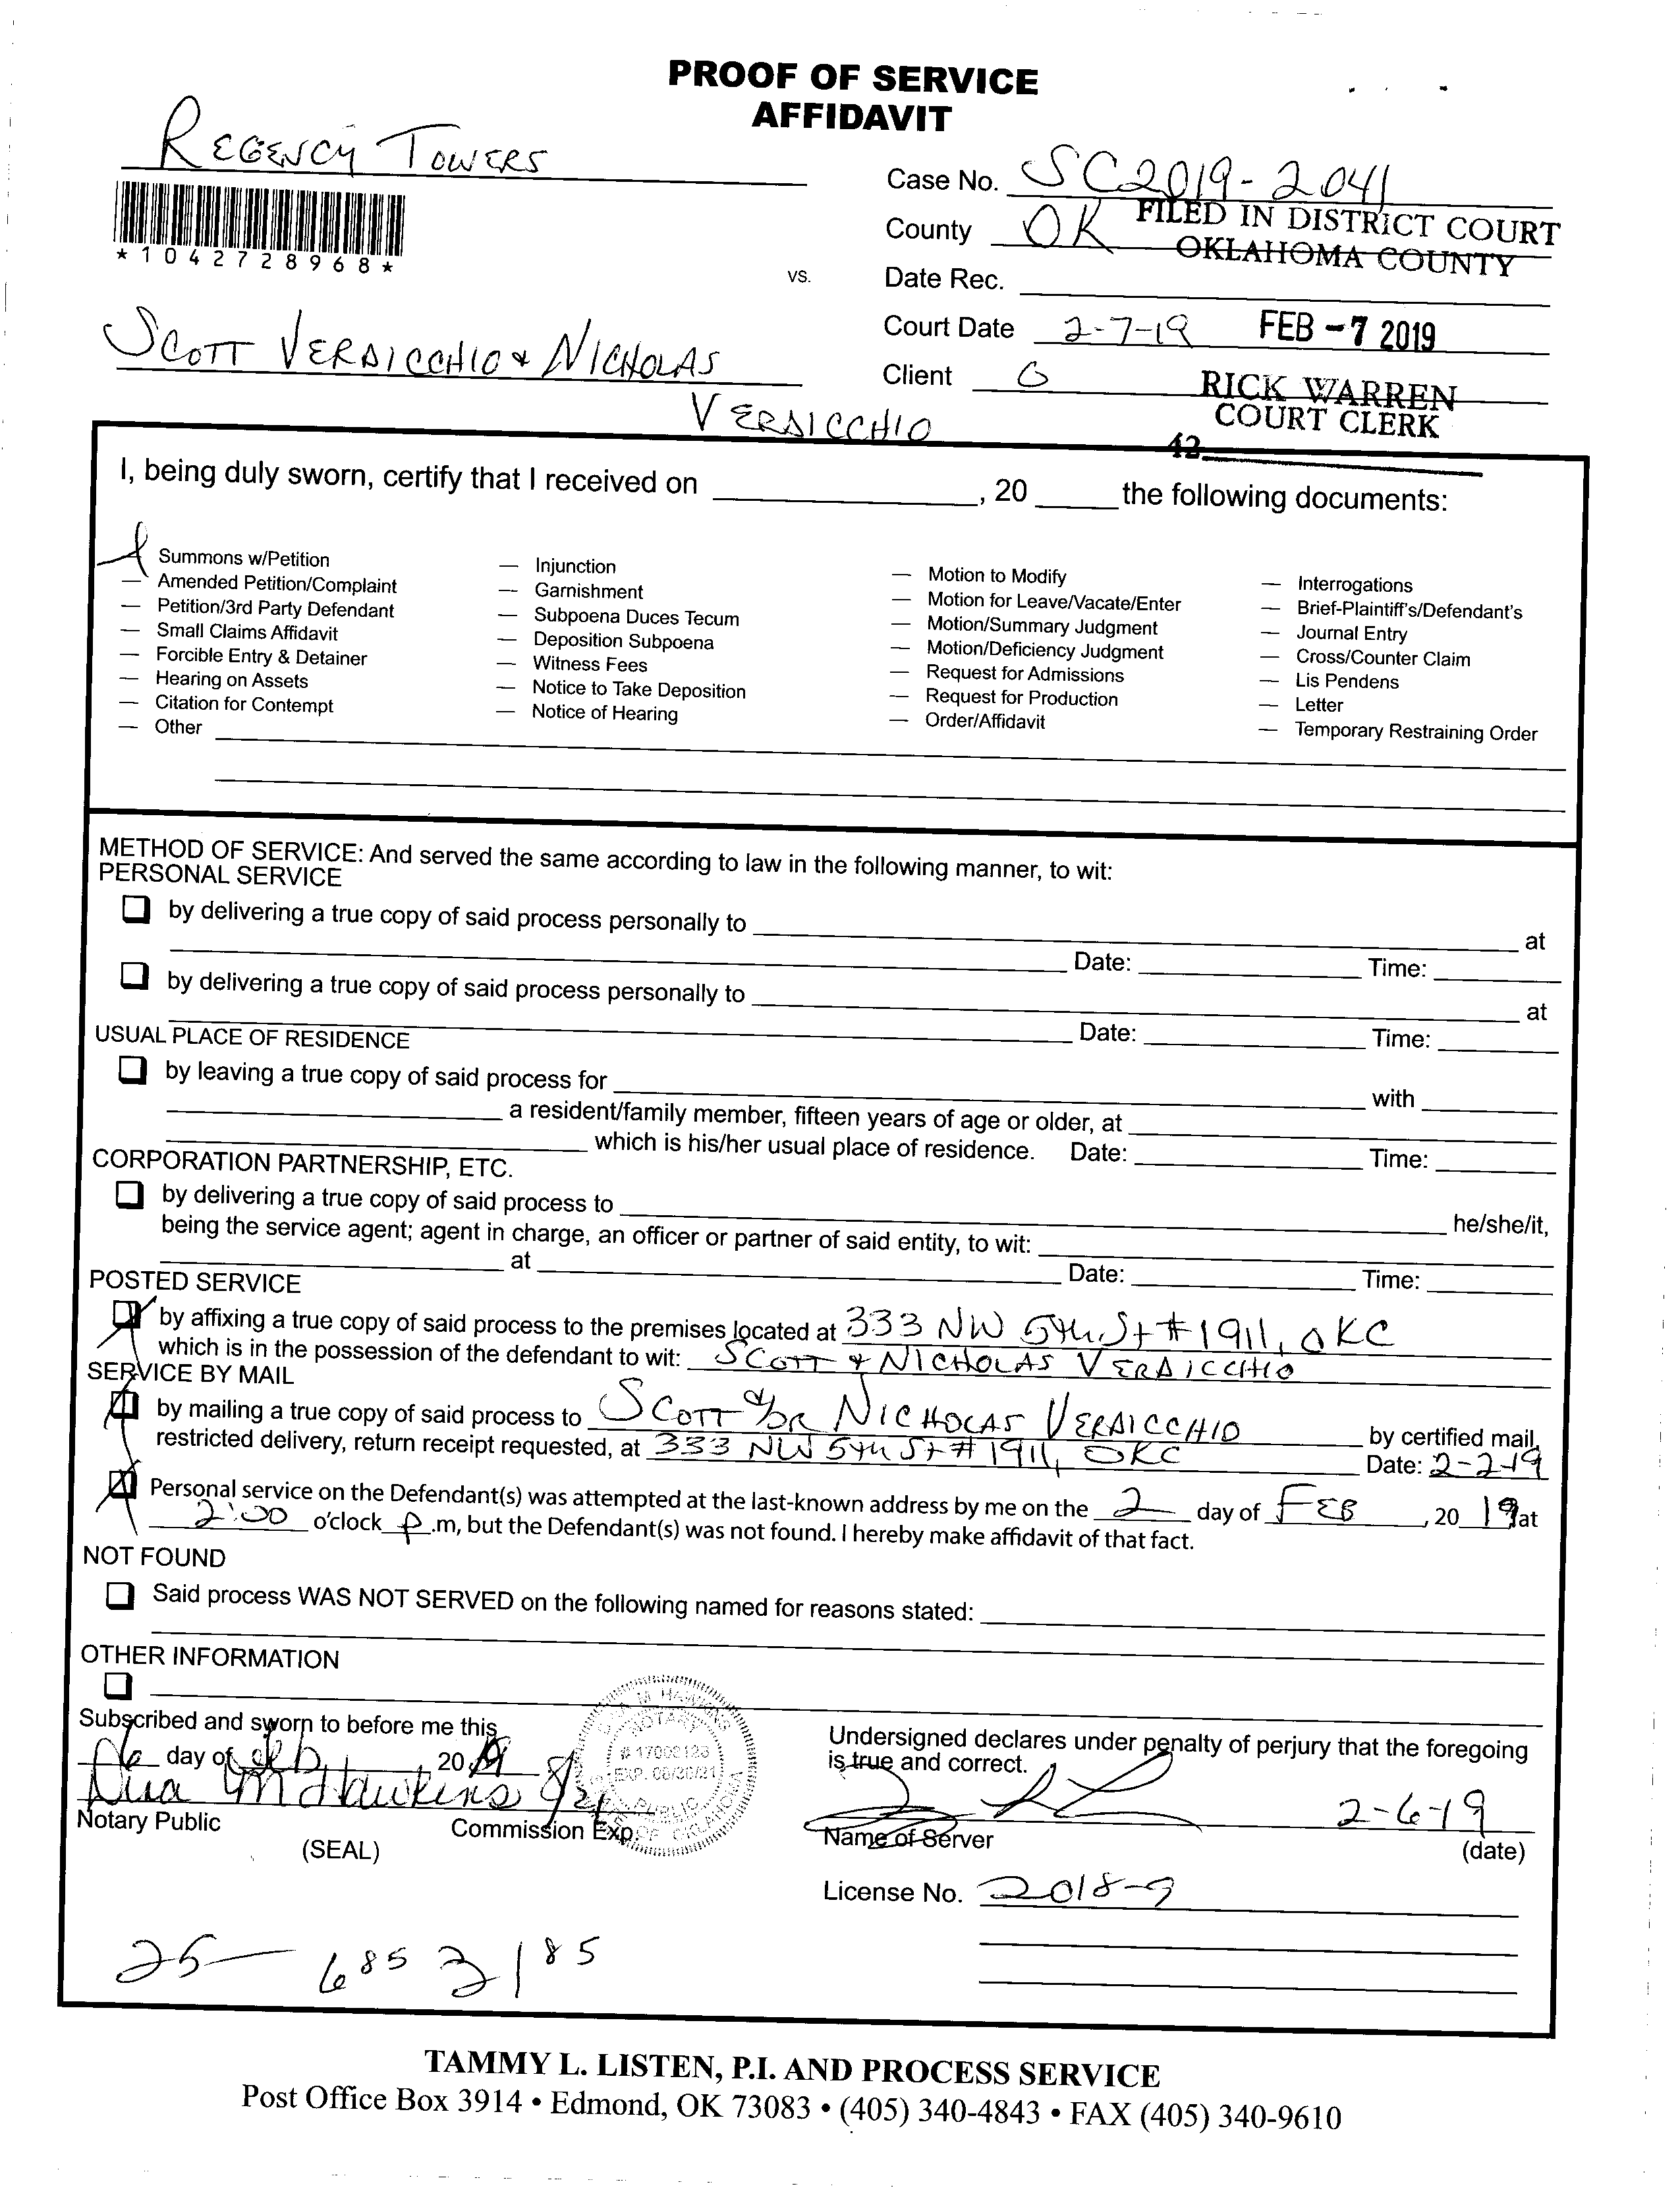 PROOF OF SERVICE
AFFIDAVIT
REGENCY TOWERS
*1042728968*
vs.
SCOTT VERDICCHIO & NICHOLAS
VERDICCHIO
Case No. SC2019-2041
County OK
FILED IN DISTRICT COURT
OKLAHOMA COUNTY
Date Rec.
Court Date 2-7-19
FEB -7 2019
Client G
RICK WARREN
COURT CLERK
42
I, being duly sworn, certify that I received on , 20 the following documents:
Summons w/Petition
Amended Petition/Complaint
Petition/3rd Party Defendant
Small Claims Affidavit
Forcible Entry & Detainer
Hearing on Assets
Citation for Contempt
Other
Injunction
Garnishment
Subpoena Duces Tecum
Deposition Subpoena
Witness Fees
Notice to Take Deposition
Notice of Hearing
Motion to Modify
Motion for Leave/Vacate/Enter
Motion/Summary Judgment
Motion/Deficiency Judgment
Request for Admissions
Request for Production
Order/Affidavit
Interrogations
Brief-Plaintiff's/Defendant's
Journal Entry
Cross/Counter Claim
Lis Pendens
Letter
Temporary Restraining Order
METHOD OF SERVICE: And served the same according to law in the following manner, to wit:
PERSONAL SERVICE
by delivering a true copy of said process personally to at
Date: Time:
by delivering a true copy of said process personally to at
Date: Time:
USUAL PLACE OF RESIDENCE
by leaving a true copy of said process for with
a resident/family member, fifteen years of age or older, at
which is his/her usual place of residence. Date: Time:
CORPORATION PARTNERSHIP, ETC.
by delivering a true copy of said process to he/she/it,
being the service agent; agent in charge, an officer or partner of said entity, to wit:
at Date: Time:
POSTED SERVICE
by affixing a true copy of said process to the premises located at 333 NW 5th St #1911, OKC
which is in the possession of the defendant to wit: SCOTT & NICHOLAS VERDICCHIO
SERVICE BY MAIL
by mailing a true copy of said process to SCOTT &/OR NICHOLAS VERDICCHIO by certified mail,
restricted delivery, return receipt requested, at 333 NW 5th St #1911, OKC Date: 2-2-19
Personal service on the Defendant(s) was attempted at the last-known address by me on the 2 day of FEB, 20 19 at
2:00 o'clock p.m, but the Defendant(s) was not found. I hereby make affidavit of that fact.
NOT FOUND
Said process WAS NOT SERVED on the following named for reasons stated:
OTHER INFORMATION
Subscribed and sworn to before me this
6 day of Feb, 2019
M Hawkins
Notary Public
Commission Exp.
(SEAL)
M. HAWKINS
NOTARY
PUBLIC
OF OKLAHOMA
Undersigned declares under penalty of perjury that the foregoing
is true and correct.
2-6-19
Name of Server
(date)
License No. 2018-9
25— 685 2185
TAMMY L. LISTEN, P.I. AND PROCESS SERVICE
Post Office Box 3914 • Edmond, OK 73083 • (405) 340-4843 • FAX (405) 340-9610